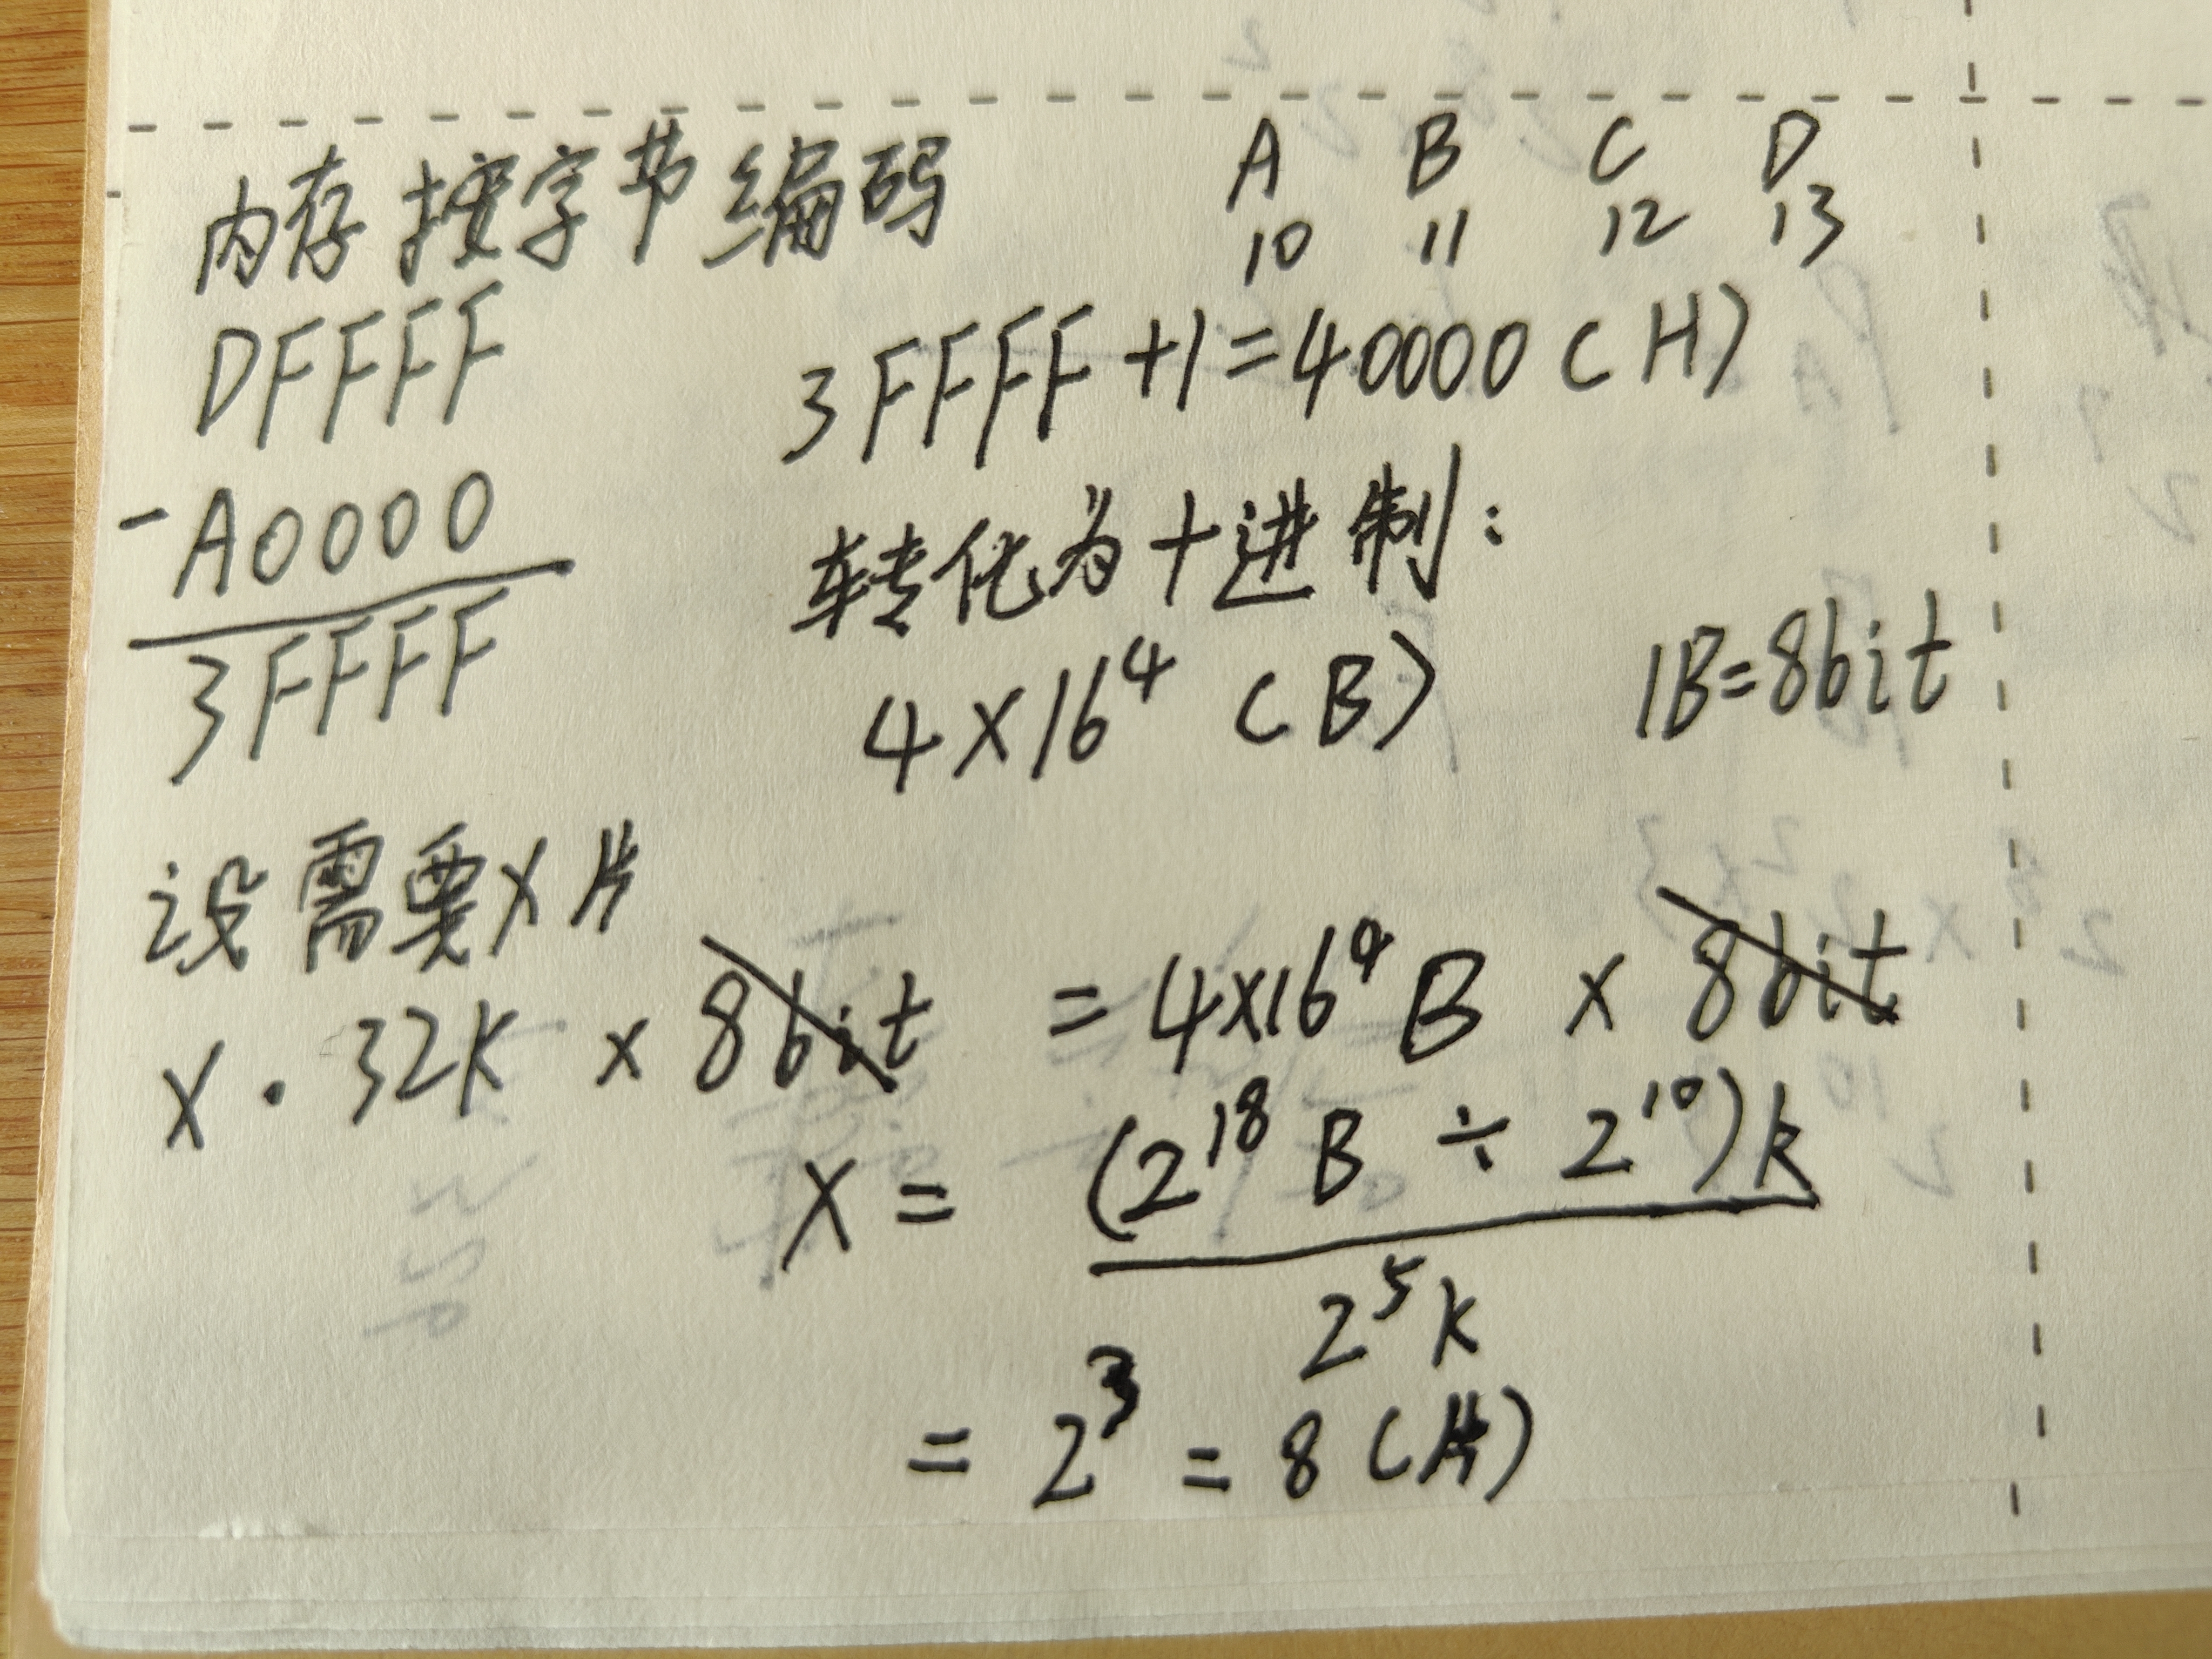 内存按字节编码
A B C D
10 11 12 13
DFFFF
-A0000
3FFFF
3FFFF+1=40000(H)
转化为十进制:
4×16⁴ (B)
1B=8bit
设需要X片
X·32K × 8bit = 4×16⁴B × 8bit
X = (2¹⁸B ÷ 2¹⁰)k
2⁵k
= 2³ = 8(片)